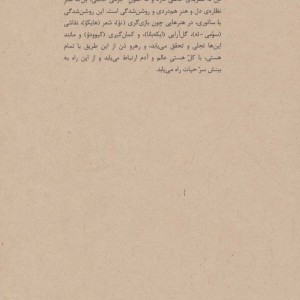 نظاره‌ی دل و هنر همدردی و روشن‌شدگی است. این روشن‌شدگی
یا ساتوری، در هنرهایی چون بازیگری (نؤ)، شعر (هایکو)، نقاشی
(سومی-ئه)، گل‌آرایی (ایکه‌بانا)، و کمان‌گیری (کیودو) و مانند
این‌ها تجلی و تحقق می‌یابد، و رهرو ذن از این طریق با تمام
هستی، با کلّ هستی عالم و آدم ارتباط می‌یابد و از این راه به
بینش سرّ حیات راه می‌یابد.